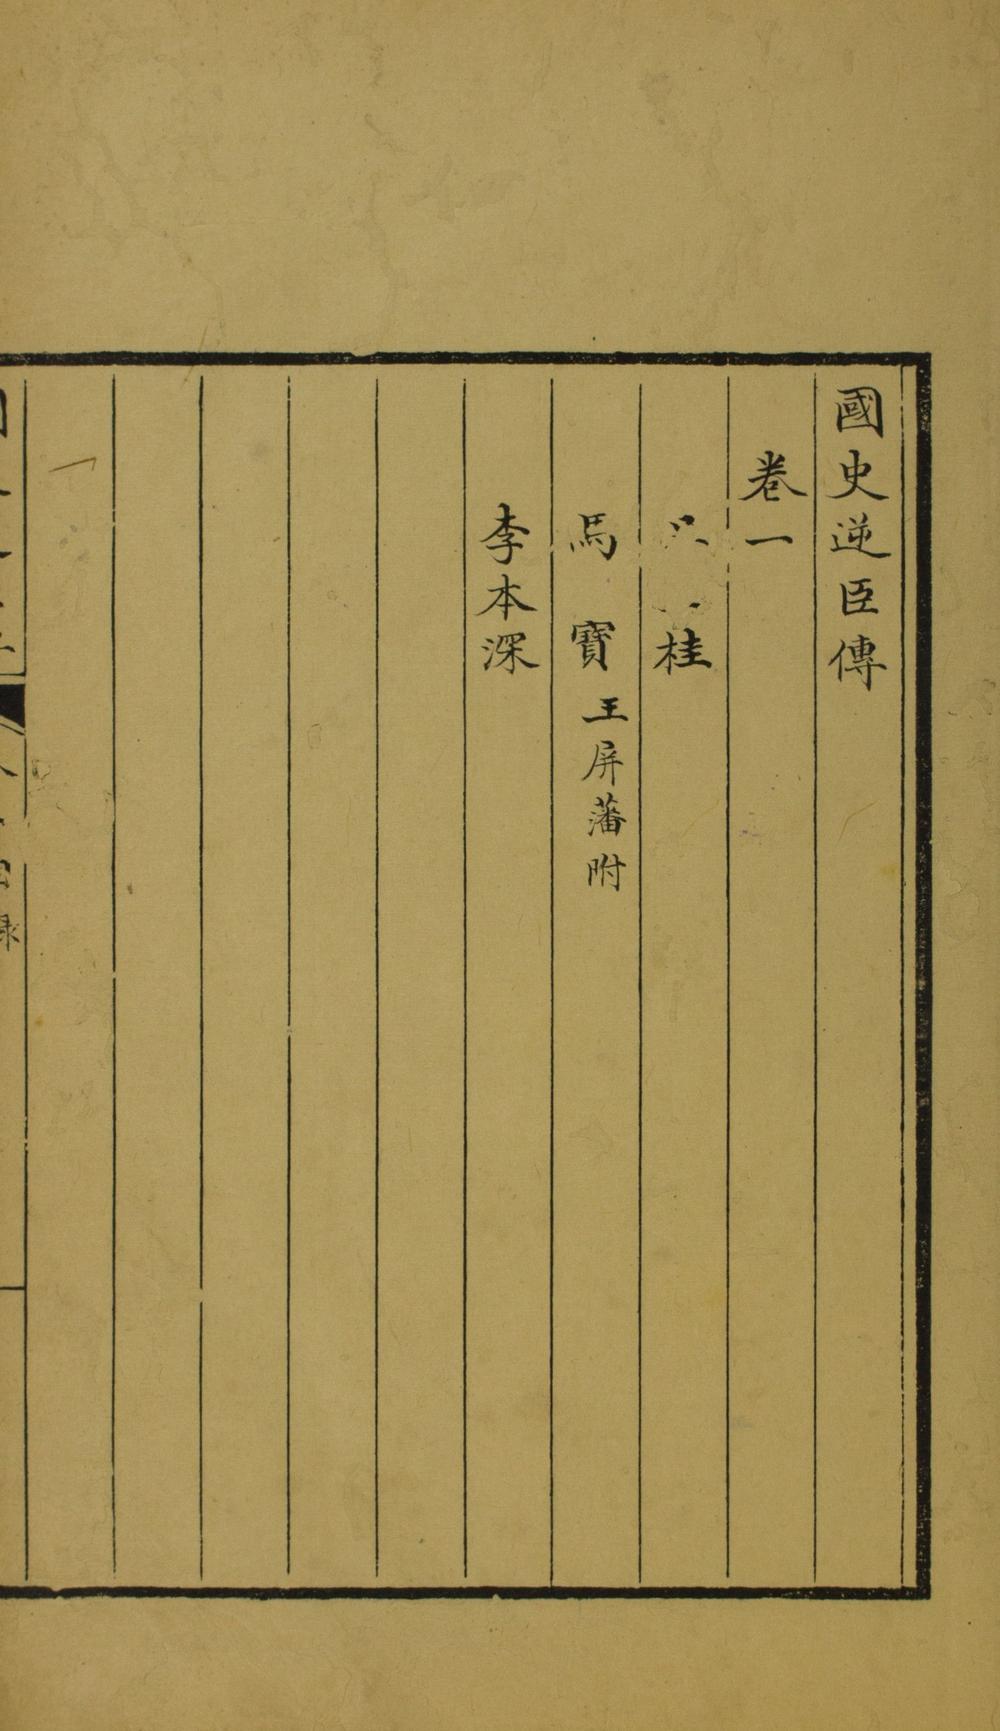 國史逆臣傳
卷一
桂
馬寶 王屏藩附
李本深